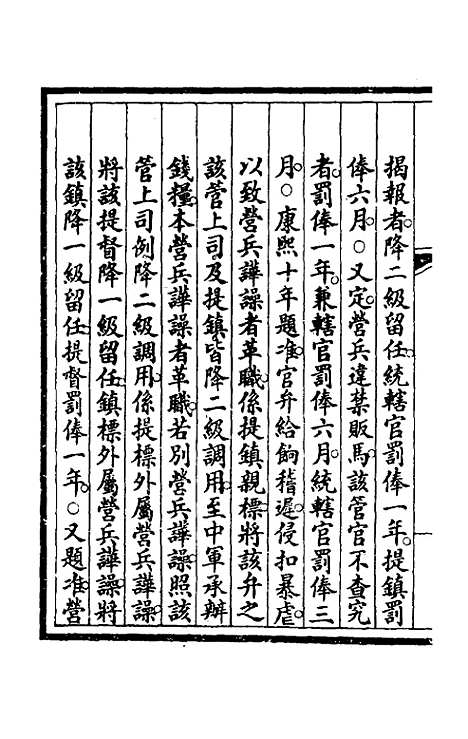 揭報者。降二級留任。統轄官罰俸一年。提鎮罰
俸六月。○又定。營兵違禁販馬。該管官不查究
者。罰俸一年。兼轄官罰俸六月。統轄官罰俸三
月。○康熙十年題准。官弁給餉稽遲。侵扣暴虐。
以致營兵譁譟者革職。係提鎮親標。將該弁之
該管上司。及提鎮。皆降二級調用。至中軍承辦
錢糧。本營兵譁譟者革職。若別營兵譁譟。照該
管上司例。降二級調用。係提標外屬營兵譁譟。
將該提督降一級留任。鎮標外屬營兵譁譟。將
該鎮降一級留任。提督罰俸一年。○又題准。營